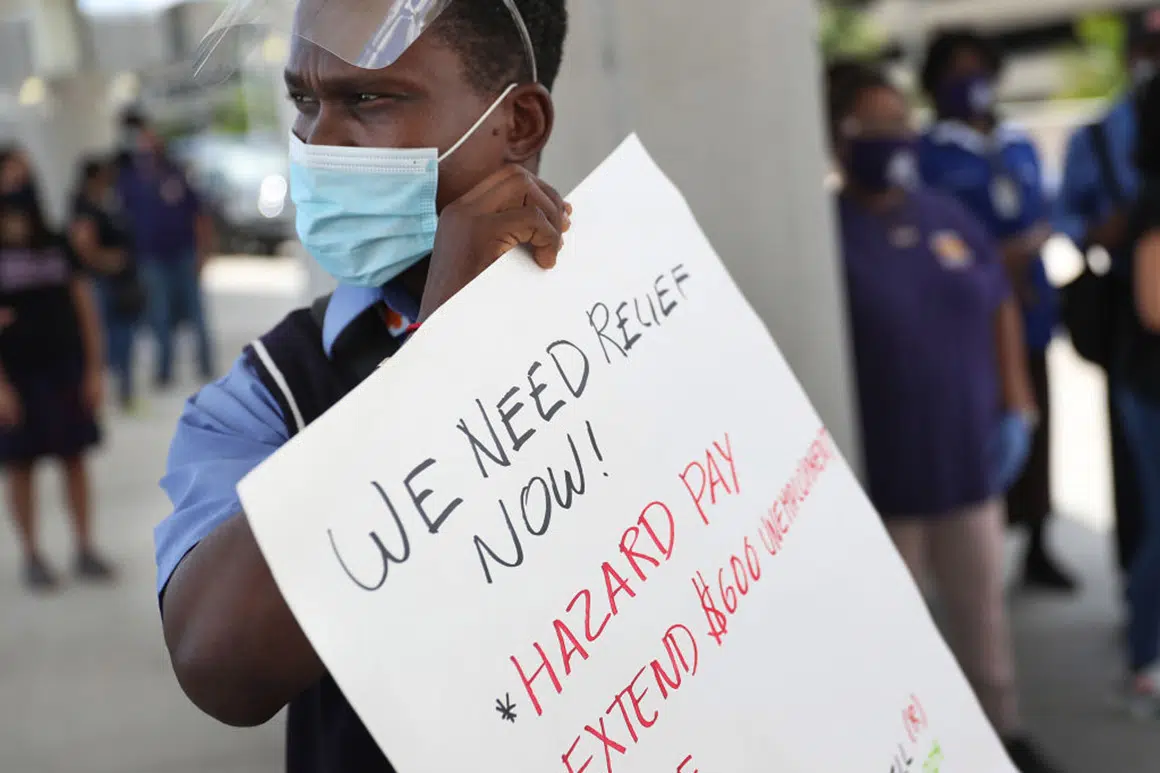 WE NEED RELIEF
NOW!
*HAZARD PAY
EXTEND $600 UNEMPLOYMENT
(R)